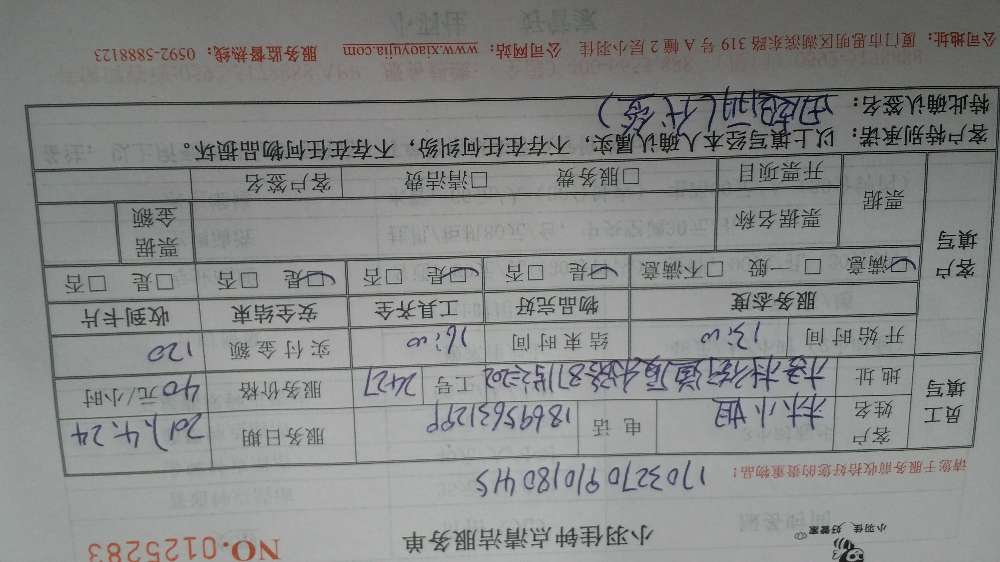 小羽佳 好管家
小羽佳钟点清洁服务单
NO.0125283
170327091018045
请您于服务前收拾好您的贵重物品！
员工填写
客户姓名 林小姐 电话 18695631299 服务日期 2017.4.24
地址 工号 2427 服务价格 40元/小时
开始时间 13:00 结束时间 16:00 实付金额 120
客户填写
服务态度 物品完好 工具齐全 安全结束 收到卡片
☑满意 □一般 □不满意 ☑是 □否 ☑是 □否 ☑是 □否 □是 □否
票据 票据名称 票据金额
开票项目 □服务费 □清洁费 客户签名
客户特别承诺：以上填写经本人确认属实，不存在任何纠纷，不存在任何物品损坏。
特此确认签名： （代签）
公司地址：厦门市思明区湖滨东路 319 号 A 幢 2 层小羽佳 公司网站：www.xiaoyujia.com 服务监督热线：0592-5888123